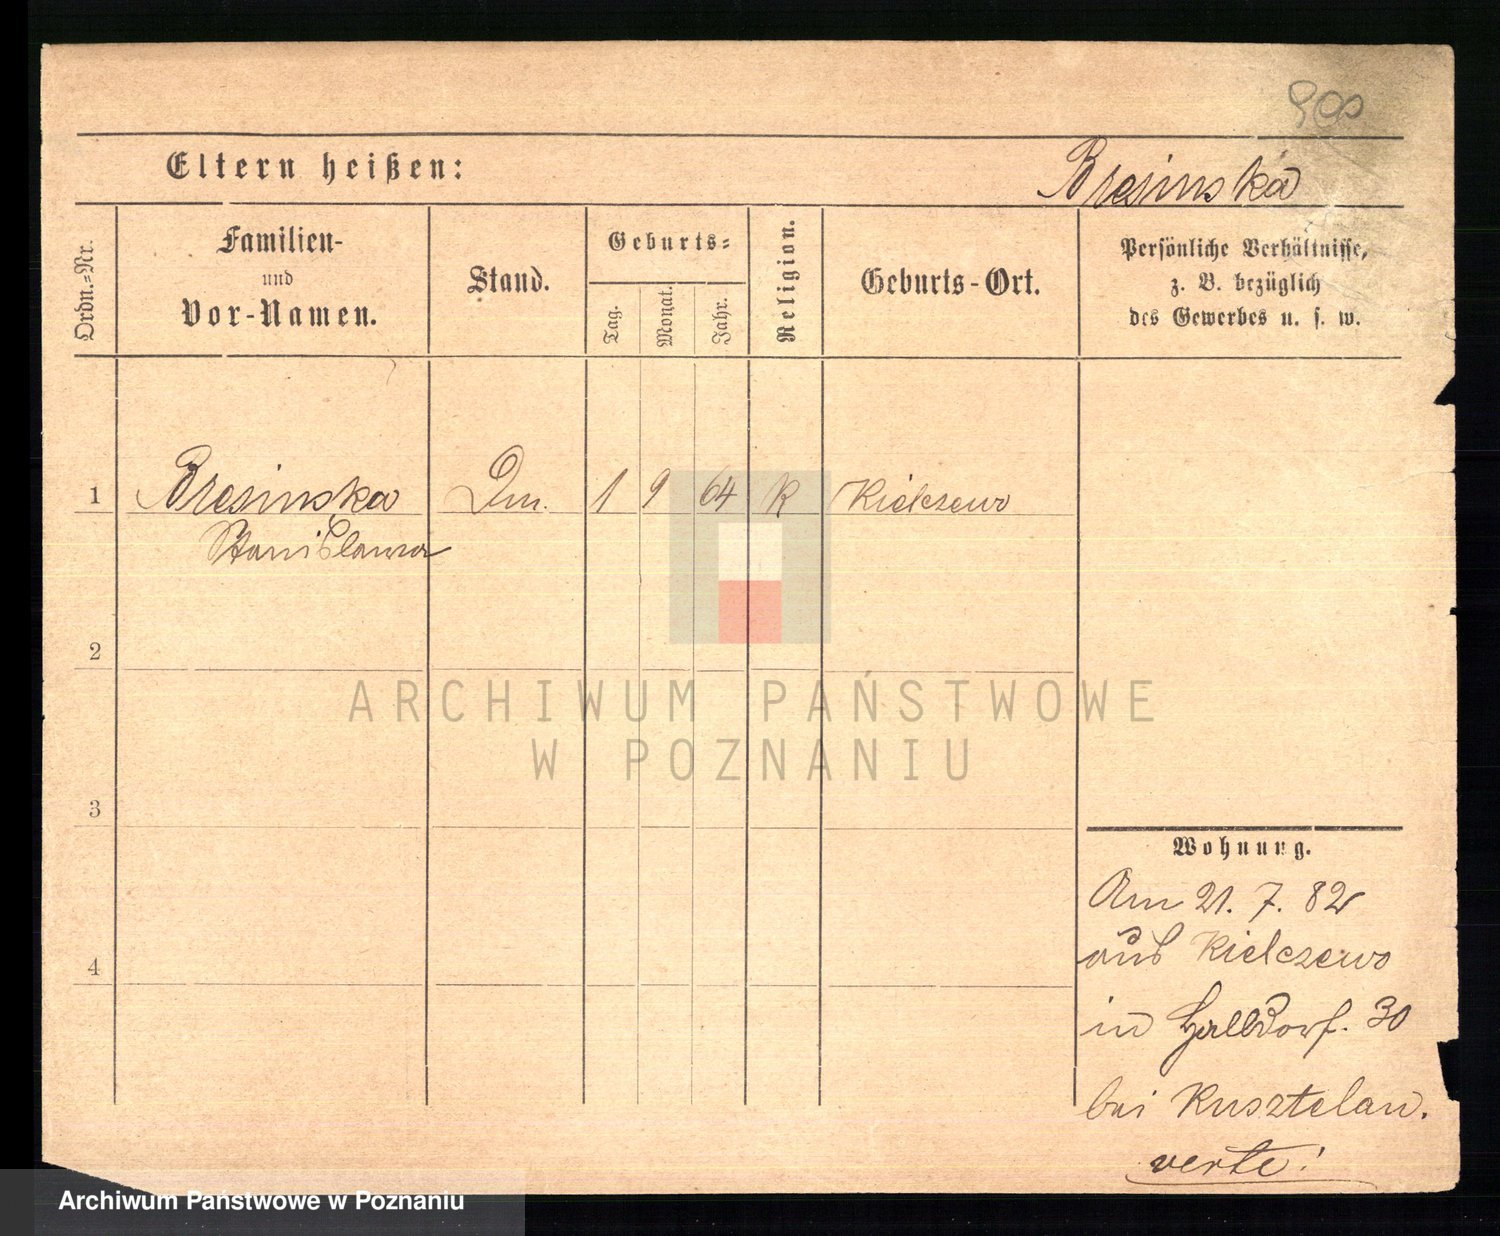 Eltern heißen:
Bresinska
Ordn.-Nr.
Familien-
und
Vor-Namen.
Stand.
Geburts-
Tag.
Monat.
Jahr.
Religion.
Geburts-Ort.
Persönliche Verhältnisse,
z. B. bezüglich
des Gewerbes u. s. w.
1 Bresinska Dm. 1 9 64 K Kielczewo
Stanislawa
2
3
4
ARCHIWUM PAŃSTWOWE
W POZNANIU
Wohnung.
Am 21. 7. 82
aus Kielczewo
in Halldorf. 30
bei Kusztelan.
verte!
Archiwum Państwowe w Poznaniu